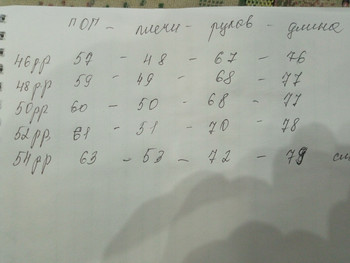 ПОГ - плечи - рукав - длина
46рр 57 - 48 - 67 - 76
48рр 59 - 49 - 68 - 77
50рр 60 - 50 - 68 - 77
52рр. 61 - 51 - 70 - 78
54рр 63 - 53 - 72 - 79 см